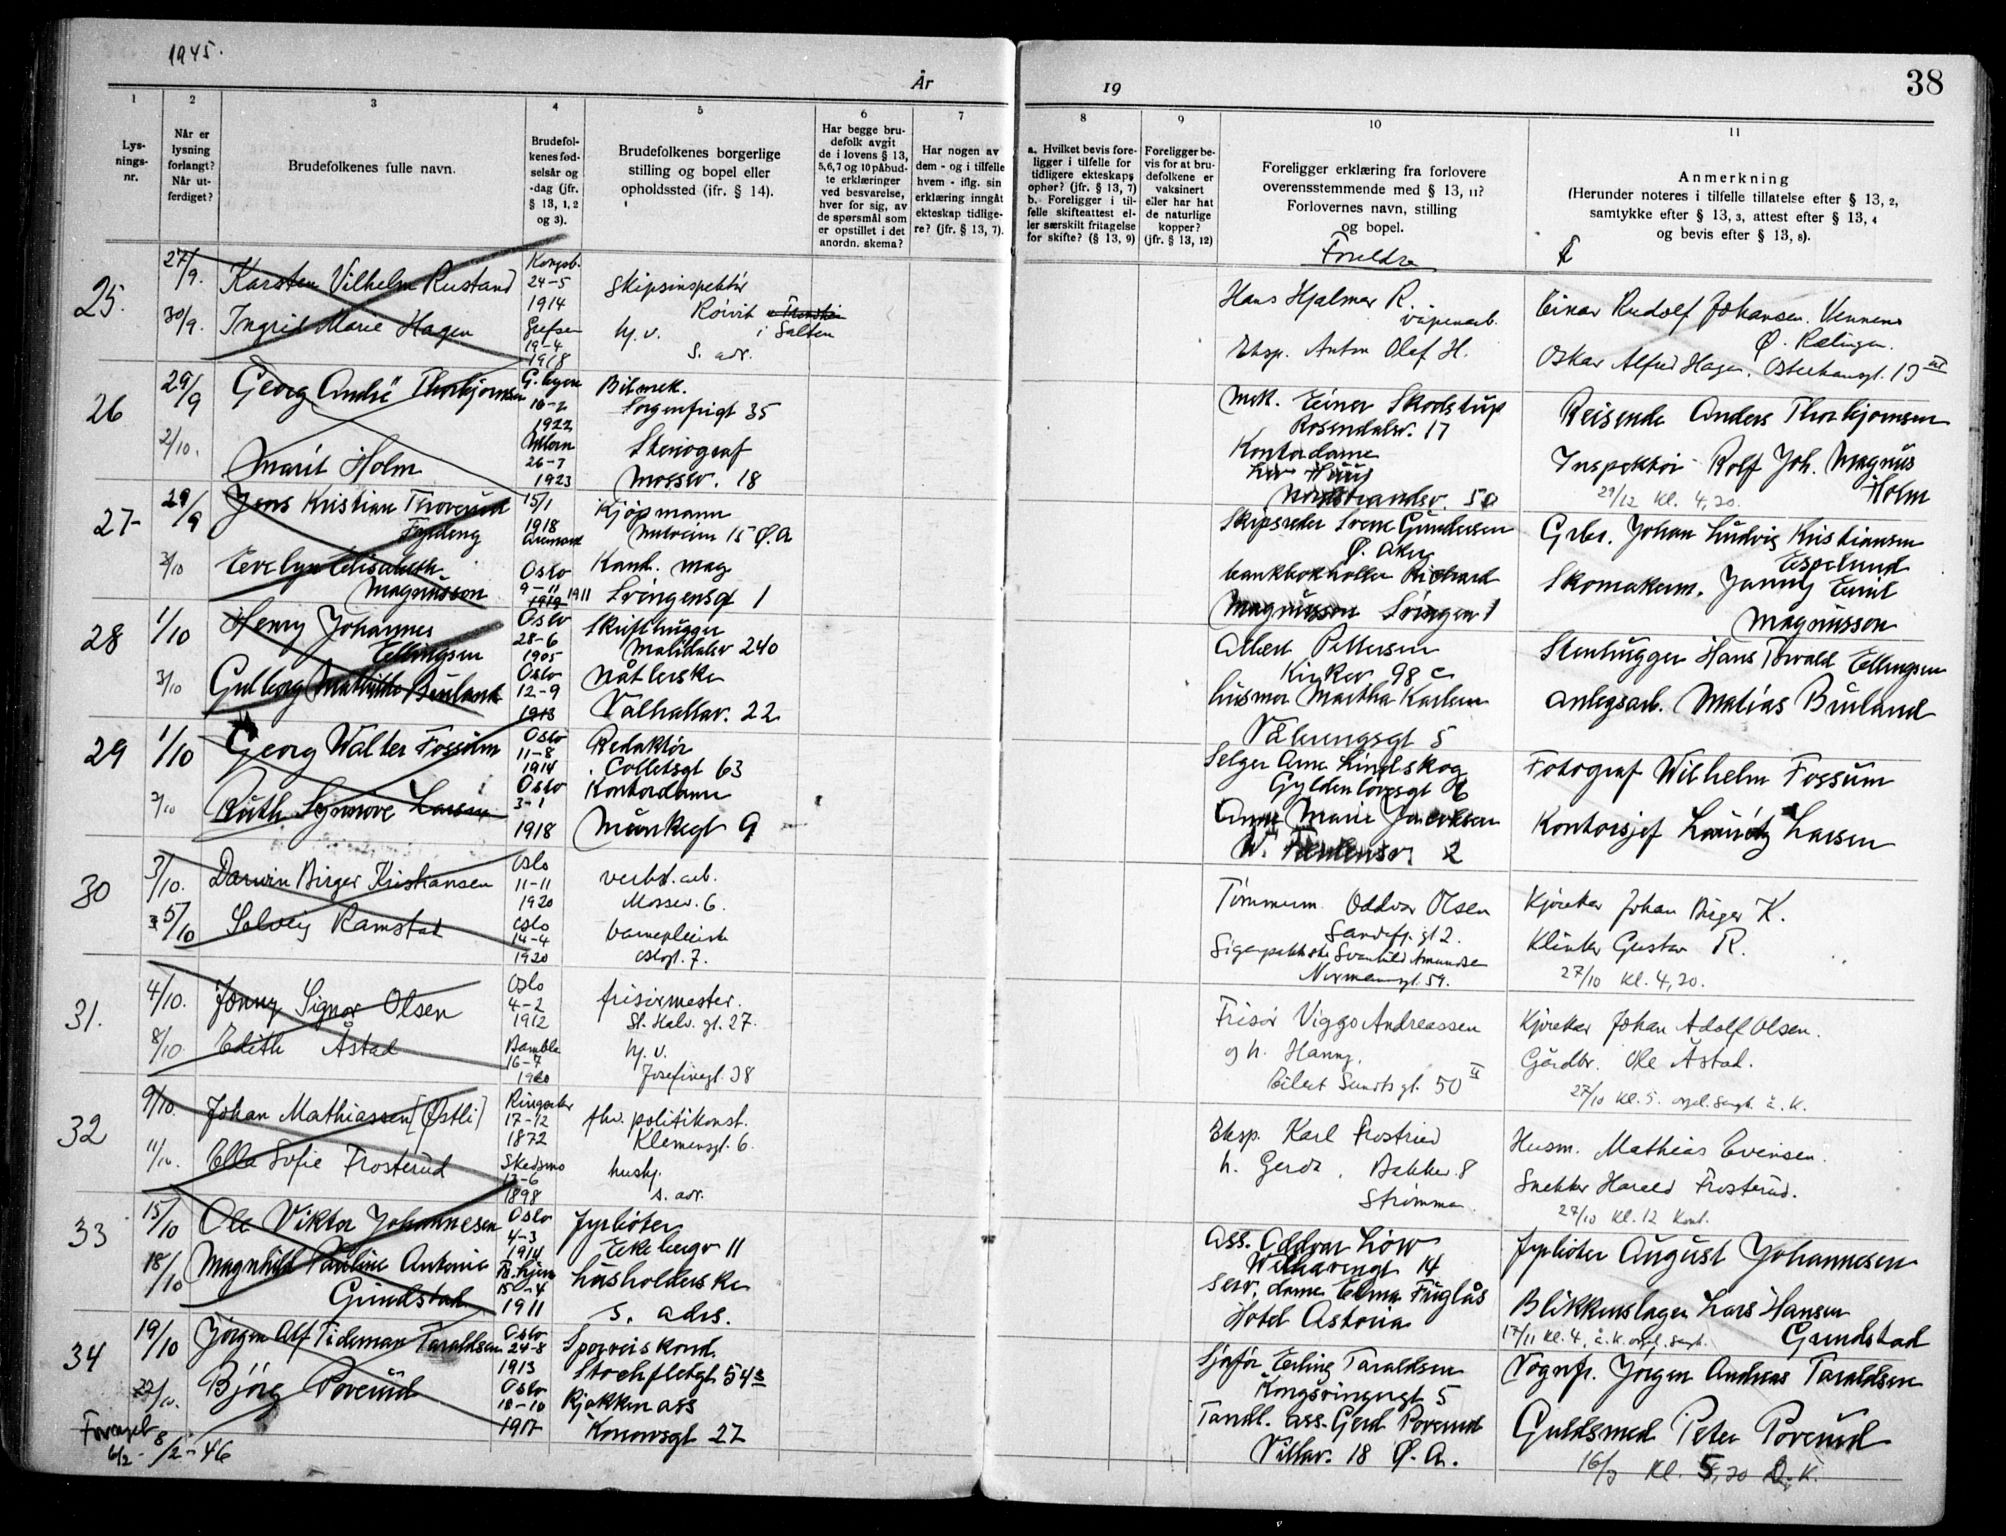 1945.
År
19
38
1
2
3
4
5
6
7
8
9
10
11
Lys-
nings-
nr.
Når er
lysning
forlangt?
Når ut-
ferdiget?
Brudefolkenes fulle navn.
Brudefol-
kenes fød-
selsår og
-dag (jfr.
§ 13, 1, 2
og 3).
Brudefolkenes borgerlige
stilling og bopel eller
opholdssted (ifr. § 14).
Har begge bru-
defolk avgit
de i lovens § 13,
5,6,7 og 10 påbud-
te erklæringer
ved besvarelse,
hver for sig, av
de spørsmål som
er opstillet i det
anordn. skema?
Har nogen av
dem - og i tilfelle
hvem - iflg. sin
erklæring inngåt
ekteskap tidlige-
re? (jfr. § 13, 7).
a. Hvilket bevis fore-
ligger i tilfelle for
tidligere ekteskaps
ophør? (jfr. § 13, 7)
b. Foreligger i til-
felle skifteattest el-
ler særskilt fritagelse
for skifte? (§ 13, 9)
Foreligger be-
vis for at bru-
defolkene er
vaksinert
eller har hat
de naturlige
kopper?
(jfr. § 13, 12)
Foreligger erklæring fra forlovere
overensstemmende med § 13, 11?
Forlovernes navn, stilling
og bopel.
Foreldre
Anmerkning
(Herunder noteres i tilfelle tillatelse efter § 13, 2,
samtykke efter § 13, 3, attest efter § 13, 4
og bevis efter § 13, 8).
25.
27/9.
Karsten Vilhelm Rustand
Kongsb.
24-5
1914
Skipsinspektør
Røivik
i Salten
Hans Hjalmar R.
våpenarb.
Einar Rudolf Johansen
Ø. Rælingen.
30/9.
Ingrid Marie Hagen
Grefsen
19-4
1918
hj. v.
s. adr.
Eksp. Anton Olaf H.
Oskar Alfred Hagen.
26
29/9
Georg André Thorbjørnsen
16-2
1922
Bilmek.
Sorgenfrigt 35
Mek. Einer Skodstup
Rosendalsv. 17
Reisende Anders Thorbjørnsen
2/10.
Marit Holm
26-7
1923
Stenograf
Mossev. 18
Kontordame
Nordstrandsv. 50
Inspektør Rolf Joh. Magnus
Holm
29/12 Kl. 4,20.
27-
29/9
Jens Kristian Thorerud
15/1
1918
Kjøpmann
15 Ø.A
Skipsreder Svene Gundersen
Ø. Aker
Grbr. Johan Ludvig Kristiansen
Espelund
3/10
Evelyn Elisabeth
Magnusson
Oslo
9-11
1919 1911
Kand. mag
Svingensgt 1
bankbokholder Richard
Magnusson Svingen 1
Skomakerm. Janny Emil
Magnusson
28
1/10
Henry Johannes
Ellingsen
Oslo
28-6
1905
Skrifthugger
Maridalsv 240
Albert Pettersen
Kirkev 98 c
Stenhugger Hans Torvald Ellingsen
3/10
Gulborg Mathilde Buland
Oslo
12-9
1913
Nåtlerske
Valhallav. 22
husmor Martha Karlsen
Vålerengsgt 5
Anlegsarb. Matias Buland
29
1/10
Georg Walter Fossum
Oslo
11-8
1914
Redaktør
Colletsgt 63
Selger Arne Lindskog
Gyldenløvesgt 6
Fotograf Wilhelm Fossum
2/10
Ruth Synnøve Larsen
Oslo
3-1
1918
Kontordame
Munkegt 9
Anne Marie Jacobsen
2
Kontorsjef Lauritz Larsen
30
3/10.
Darwin Birger Kristiansen
Oslo
11-11
1920
verkst. arb.
Mossev. 6.
Tømmerm. Oddvar Olsen
Sandefj. gt 2.
Kjørekar Johan Birger K.
5/10
Solveig Ramstad
Oslo
14-4
1920
barnepleiersk
Oslogt. 7.
Svanhild Amundsen
Normannsgt. 59.
Klinker Gustav R.
27/10 Kl. 4,20.
31.
4/10.
Jonny Signor Olsen
Oslo
4-2
1912
frisørmester.
St. Halv. gt. 27.
Frisør Viggo Andreassen
Kjørekar Johan Adolf Olsen.
8/10.
Edith Åstad
Bamble
16-7
1920
hj. v.
Josefinegt. 38
og h. Hanny.
Eilert Sundts gt. 50 II
Gårdbr. Ole Åstad.
27/10 Kl. 5. orgel. Sang. i. K.
32
9/10.
Johan Mathiassen [Østli]
Ringsaker
17-12
1872
fhv. politikonst.
Klemensgt. 6.
Eksp. Karl Frosterud
Husm. Mathias Evensen.
11/10.
Ella Sofie Frosterud
Skedsmo
13-6
1898
hush.
s. adr.
h. Gerda, Bakker. 8
Strømmen
Snekker Harald Frosterud.
27/10 Kl. 12 Kont.
33
15/10
Ole Viktor Johannesen
Oslo
4-3
1914
fyrbøter
Ekebergv 11
Ass. Oddvar Löw
14
fyrbøter August Johannesen
18/10
Magnhild Pauline Antonie
Gundstad
15-4
1911
husholderske
s. adrs.
Serv. dame Elma Fuglås
Hotel Astoria
Blikkenslager Lars Hansen
Gundstad
17/11 Kl. 4. i. K. orgl. Sang.
34
19/10
Jørgen Alf Tideman Taraldsen
Oslo
24-8
1913
Sporveiskond.
Stockfletgt 54 B
Sjåfør Erling Taraldsen
Kongsvingergt 5
Vognfr. Jørgen Andreas Taraldsen
22/10.
Bjørg Poverud
Oslo
10-10
1917
Kjøkken ass
Konowsgt 27
Tandl. ass. Gerd Poverud
Villav. 18 Ø. A.
Guldsmed Peter Poverud
16/2 Kl. 5,20 D. K.
Fornyet
6/2 - 8/2 - 46